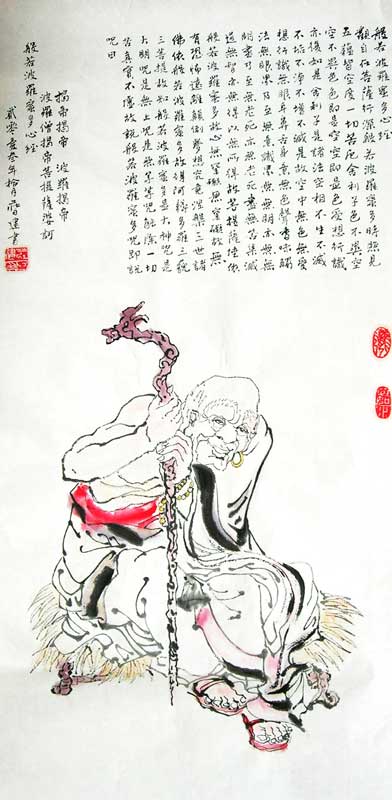 般若波羅蜜多心經
觀自在菩薩行深般若波羅蜜多時照見
五蘊皆空度一切苦厄舍利子色不異空
空不異色色即是空空即是色受想行識
亦復如是舍利子是諸法空相不生不滅
不垢不淨不增不減是故空中無色無受
想行識無眼耳鼻舌身意無色聲香味觸
法無眼界乃至無意識界無無明亦無無
明盡乃至無老死亦無老死盡無苦集滅
道無智亦無得以無所得故菩提薩埵依
般若波羅蜜多故心無罣礙無罣礙故無
有恐怖遠離顛倒夢想究竟涅槃三世諸
佛依般若波羅蜜多故得阿耨多羅三藐
三菩提故知般若波羅蜜多是大神咒是
大明咒是無上咒是無等等咒能除一切
苦真實不虛故說般若波羅蜜多咒即說
咒曰
揭帝揭帝 波羅揭帝
波羅僧揭帝菩提薩婆訶
般若波羅蜜多心經
貳零壹叁年 月 建書